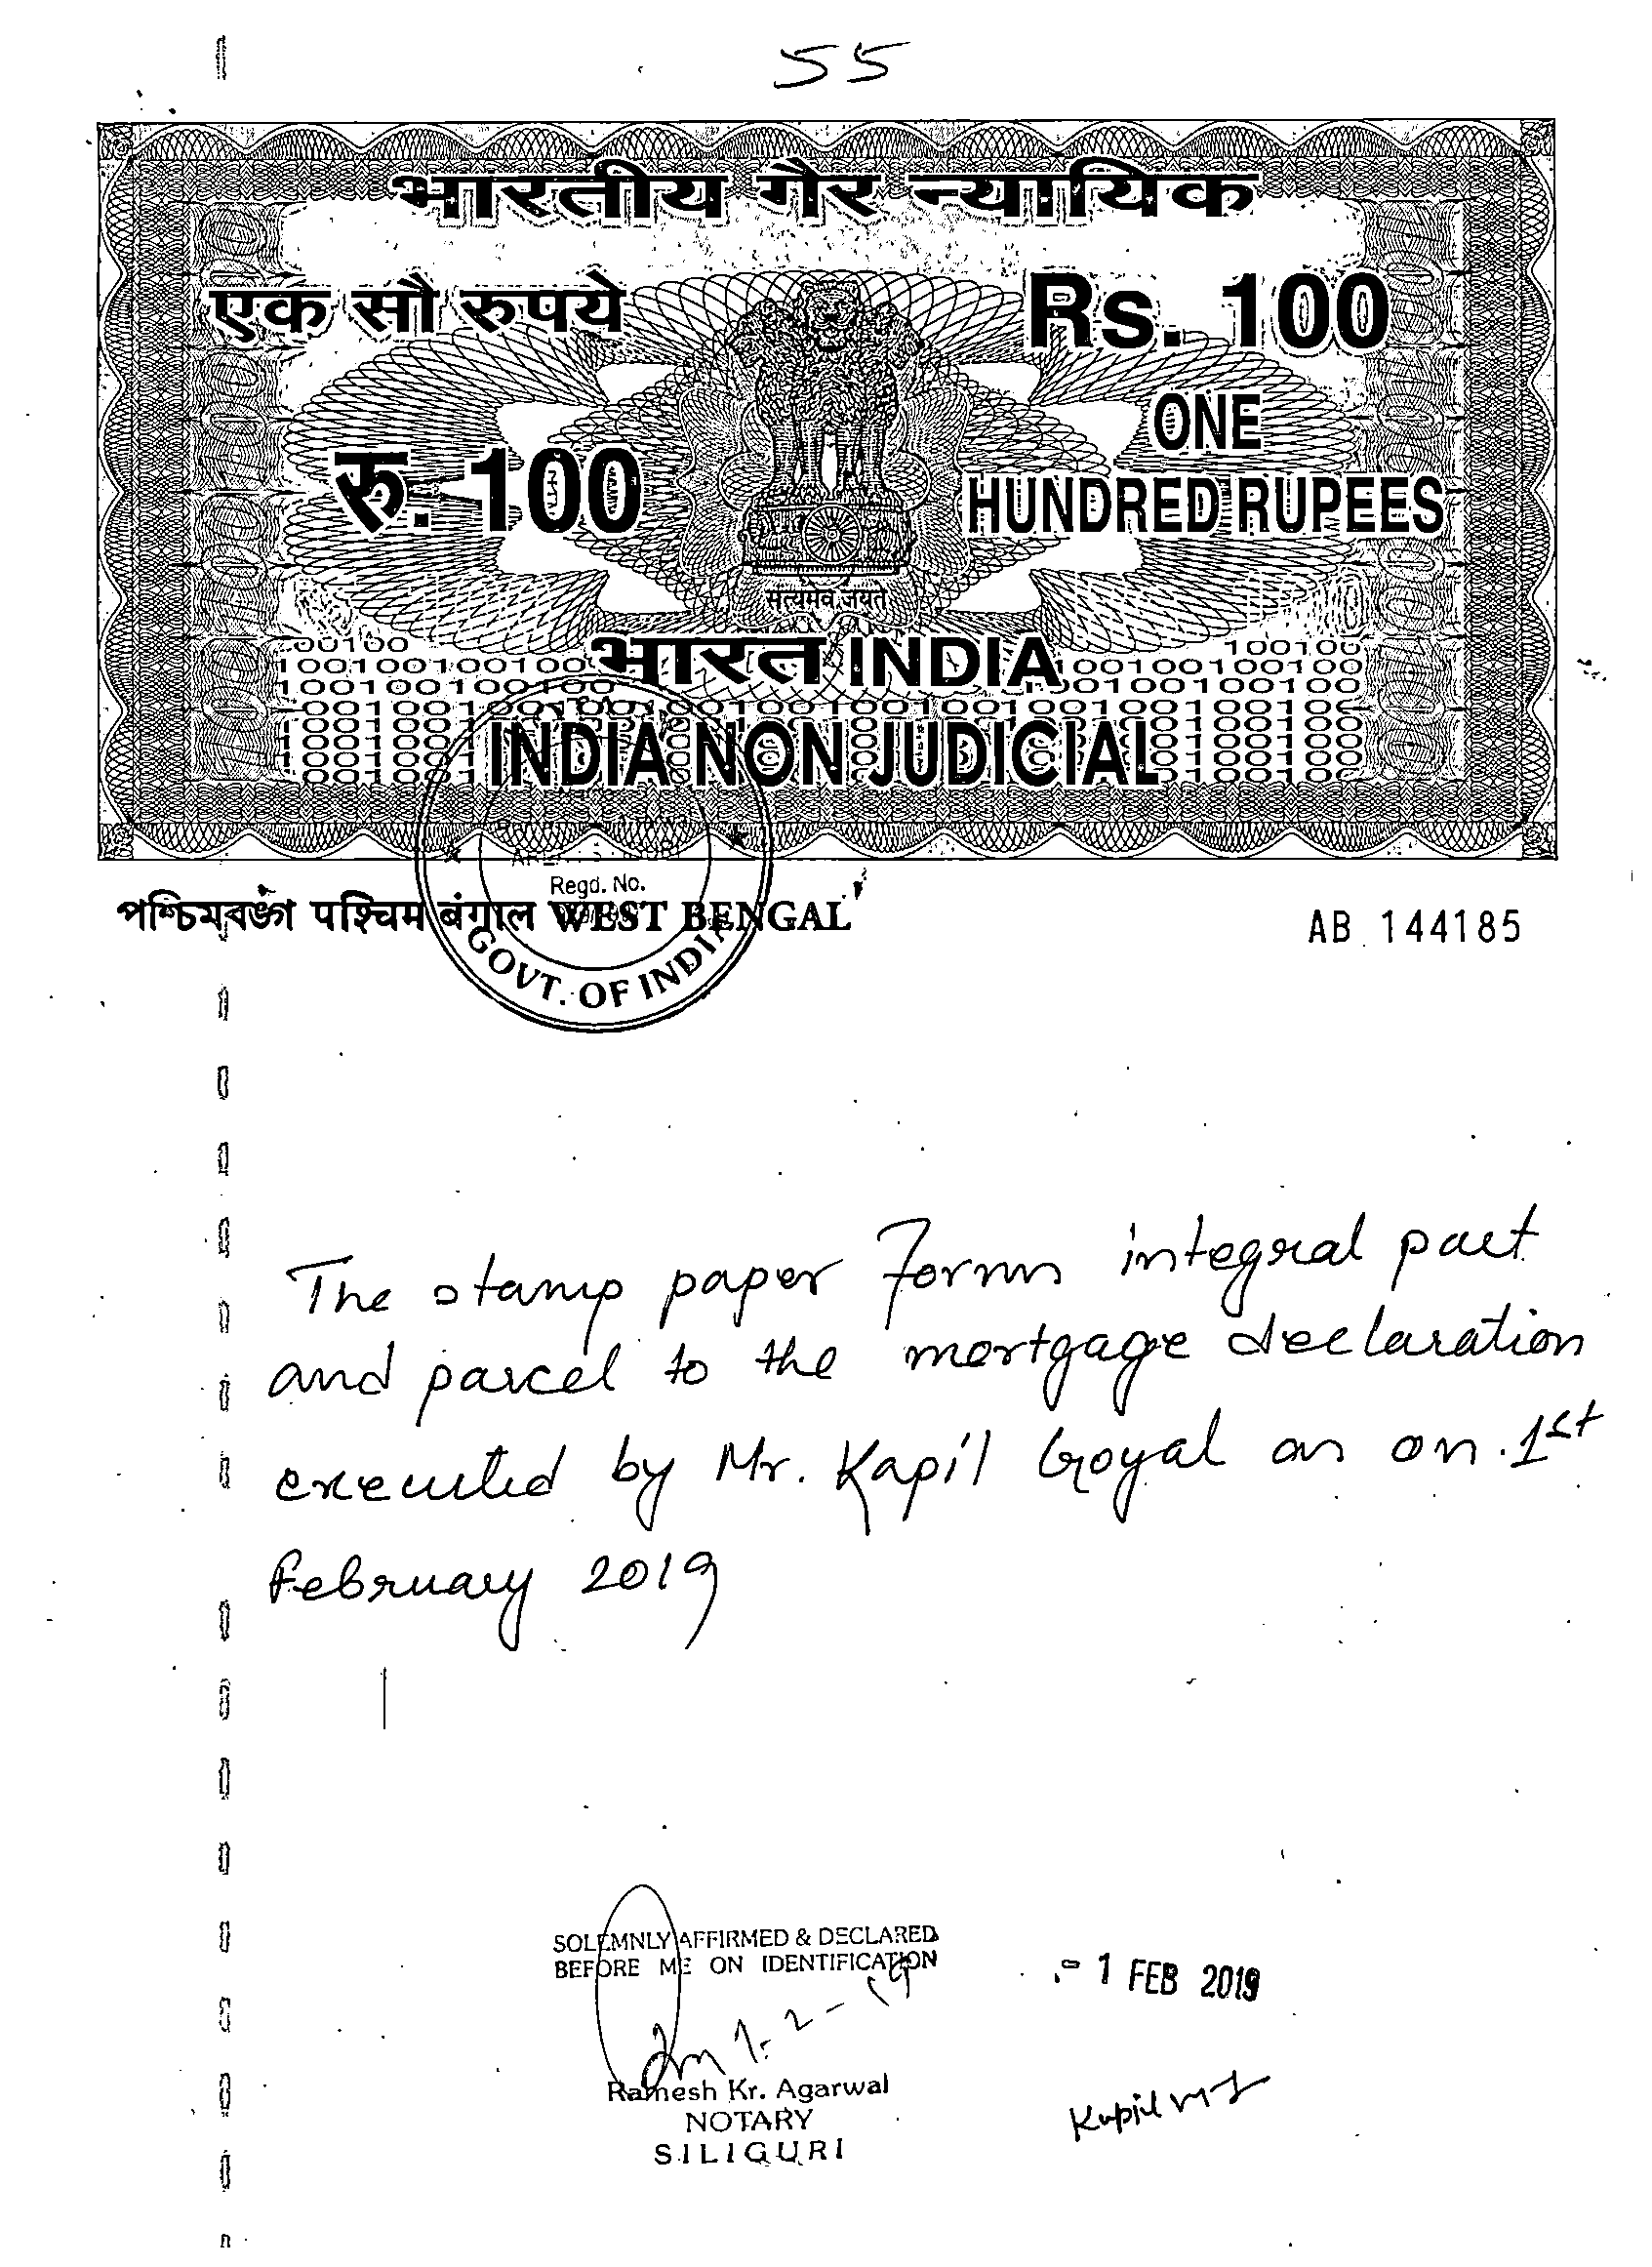 55
भारतीय गैर न्यायिक
एक सौ रुपये
Rs. 100
रु. 100
ONE
HUNDRED RUPEES
सत्यमेव जयते
भारत INDIA
INDIA NON JUDICIAL
Regd. No.
GOVT. OF INDIA
পশ্চিমবঙ্গ पश्चिम बंगाल WEST BENGAL
AB 144185
The stamp paper forms integral part
and parcel to the mortgage declaration
executed by Mr. Kapil Goyal as on 1st
February 2019
SOLEMNLY AFFIRMED & DECLARED
BEFORE ME ON IDENTIFICATION
- 1 FEB 2019
1-2-19
Ramesh Kr. Agarwal
NOTARY
SILIGURI
Kapil